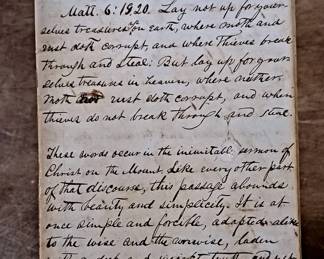 Matt. 6: 19.20. Lay not up for your-
selves treasures on earth, where moth and
rust doth corrupt, and where thieves break
through and steal: But lay up for your-
selves treasures in heaven, where neither
moth nor rust doth corrupt, and when
thieves do not break through and steal.
These words occur in the inimitable sermon of
Christ on the Mount. Like every other part
of that discourse, this passage abounds
with beauty and simplicity. It is at
once simple and forcible, adapted alike
to the wise and the unwise, laden
with